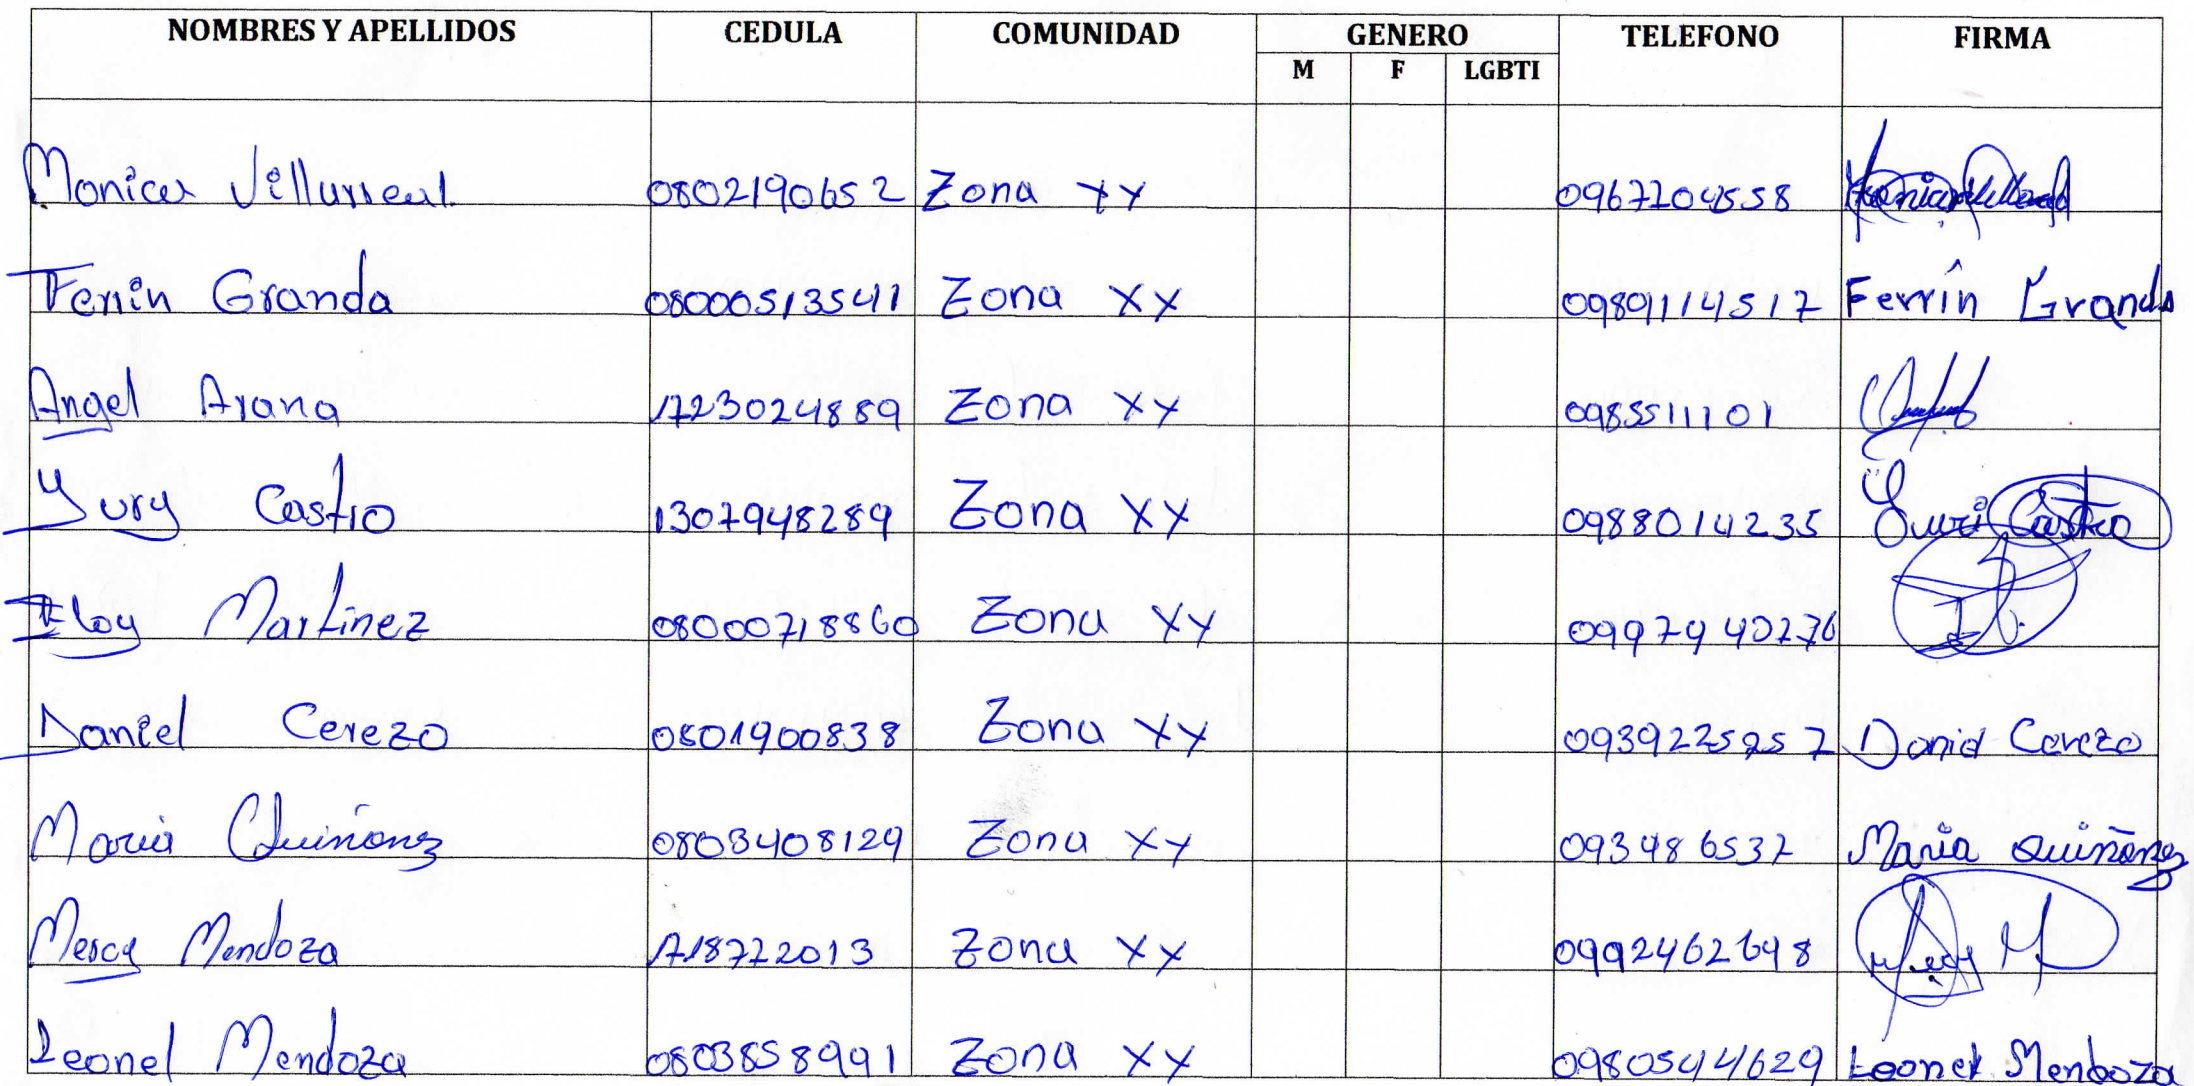 NOMBRES Y APELLIDOS CEDULA COMUNIDAD GENERO TELEFONO FIRMA
M F LGBTI
Monica Villarreal 0802190652 Zona XY 0967204558
Ferrin Granda 08000513541 Zona XY 0989114517 Ferrín Granda
Angel Arana 1723024889 Zona XY 0985511101
Yury Castro 1307948289 Zona XY 0988014235 Yuri Castro
Eloy Martinez 08000718860 Zona XY 0997940276
Daniel Cerezo 0801900838 Zona XY 0939225257 Daniel Cerezo
Maria Quiñonez 0803408129 Zona XY 093486537 Maria Quiñonez
Mercy Mendoza 1718722013 Zona XY 0992462698
Leonel Mendoza 0803858991 Zona XY 0980544629 Leonel Mendoza